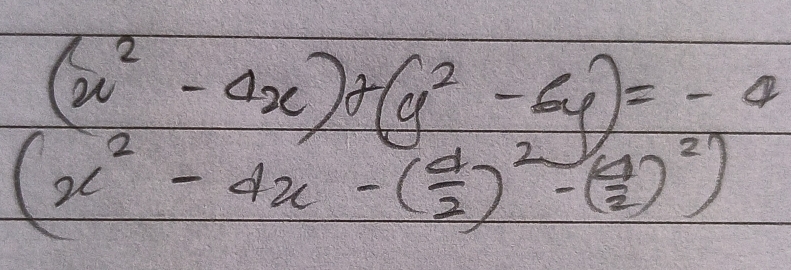 (x² - 4x) + (y² - 6y) = - 4
(x² - 4x - (4/2)² - (4/2)²)